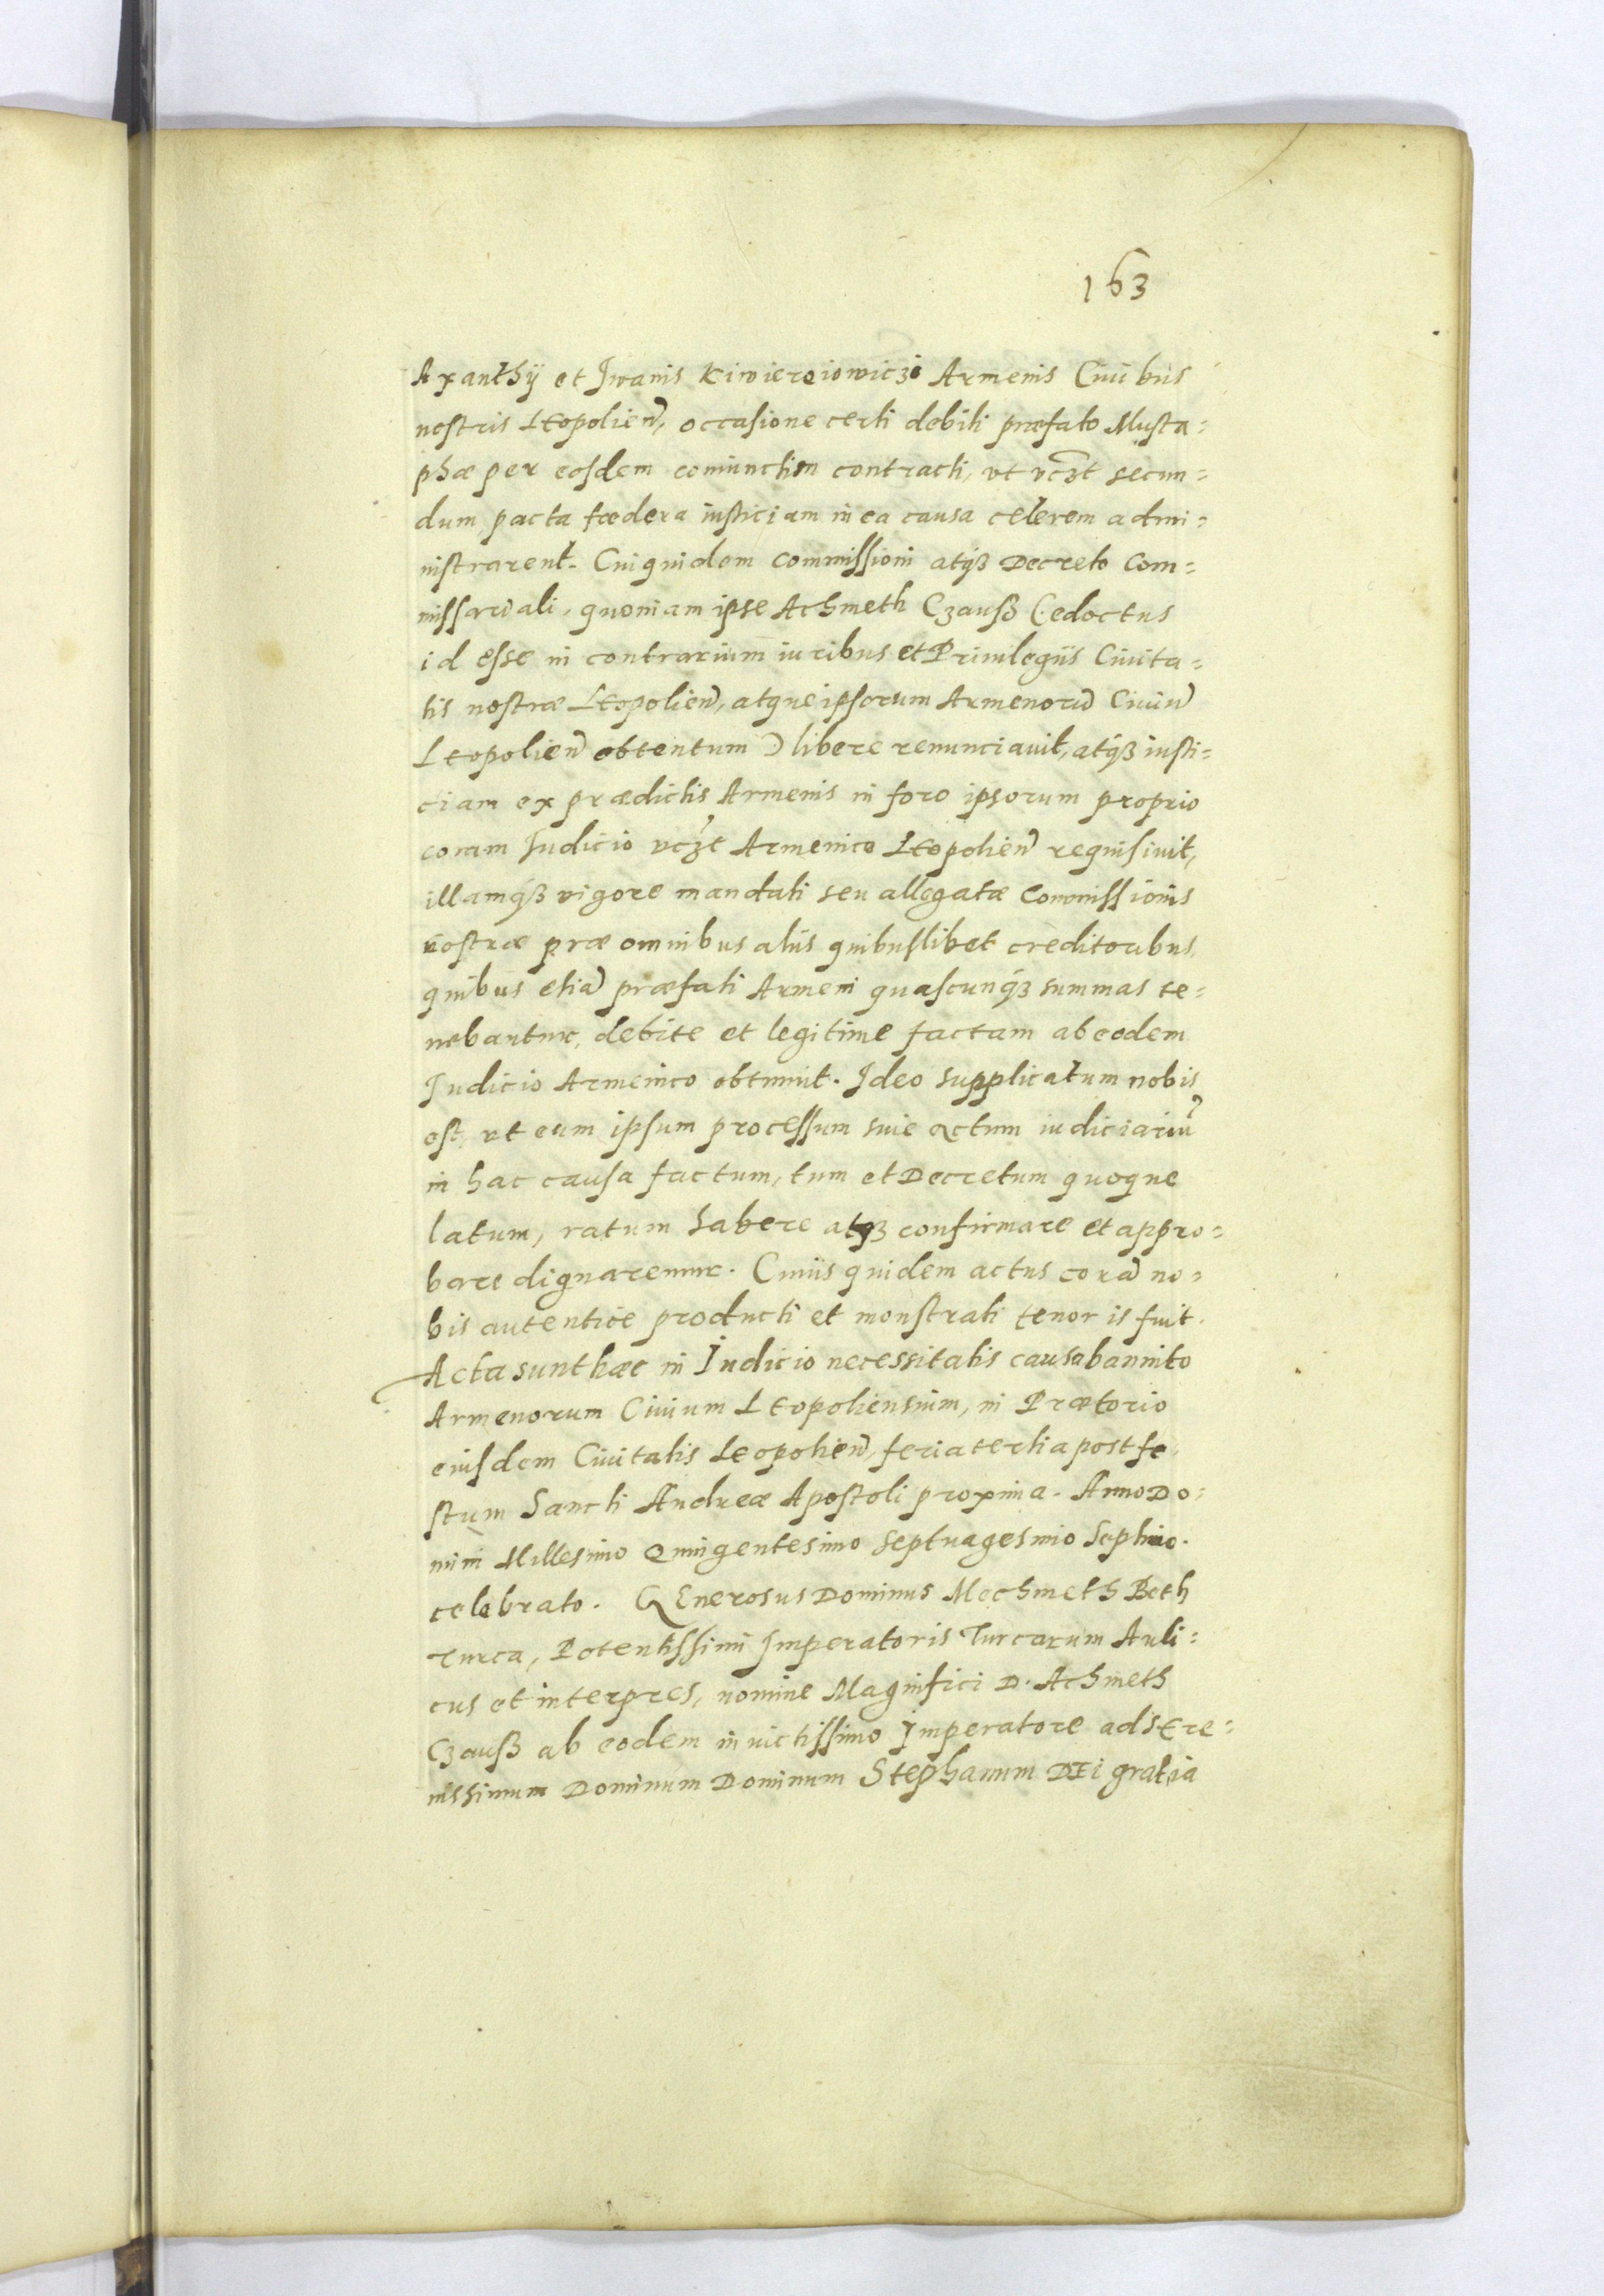 163
Axanthÿ et Iwanis Kiwieroiowiczi Armenis Ciuibus
nostris Leopolieñ, occasione certi debiti præfato Musta=
phæ per eosdem coniunctim contracti, vt vczt secun=
dum pacta fœdera iusticiam in ea causa celerem admi=
nistrarent. Cui quidem commissioni atq3 Decreto Com=
missariali, quoniam ipse Achmeth Czauß (edoctus
id esse in contrarium iuribus et Priuilegiis Ciuita=
tis nostræ Leopolieñ, atque ipsorum Armenorũ Ciuiũ
Leopolieñ obtentum) libere renunciauit, atq3 iusti=
ciam ex prædictis Armenis in foro ipsorum proprio
coram Iudicio vczt Armenico Leopolieñ requisiuit,
illamq3 vigore mandati seu allegatæ Commissionis
nostræ præ omnibus aliis quibuslibet creditoribus,
quibus etiã præfati Armeni quascunq3 summas te=
nebantur, debite et legitime factam ab eodem
Iudicio Armenico obtinuit. Ideo supplicatum nobis
est, vt eum ipsum processum siue actum iudiciariũ
in hac causa factum, tum et Decretum quoque
latum, ratum habere atq3 confirmare et appro=
bare dignaremur. Cuius quidem actus corã no=
bis autentice producti et monstrati tenor is fuit.
Acta sunt hæc in Iudicio necessitatis causa bannito
Armenorum Ciuium Leopoliensium, in Prætorio
eiusdem Ciuitatis Leopolieñ, feria tertia post fe=
stum Sancti Andreæ Apostoli proxima. Anno Do=
mini Millesimo Quingentesimo Septuagesimo Septimo.
celebrato. GEnerosus Dominus Mechmeth Beth
Turca, Potentissimi Imperatoris Turcarum Auli=
cus et interpres, nomine Magnifici D. Achmeth
Czauß ab eodem inuictissimo Imperatore ad sere=
nissimum Dominum Dominum Stephanum DEi gratia